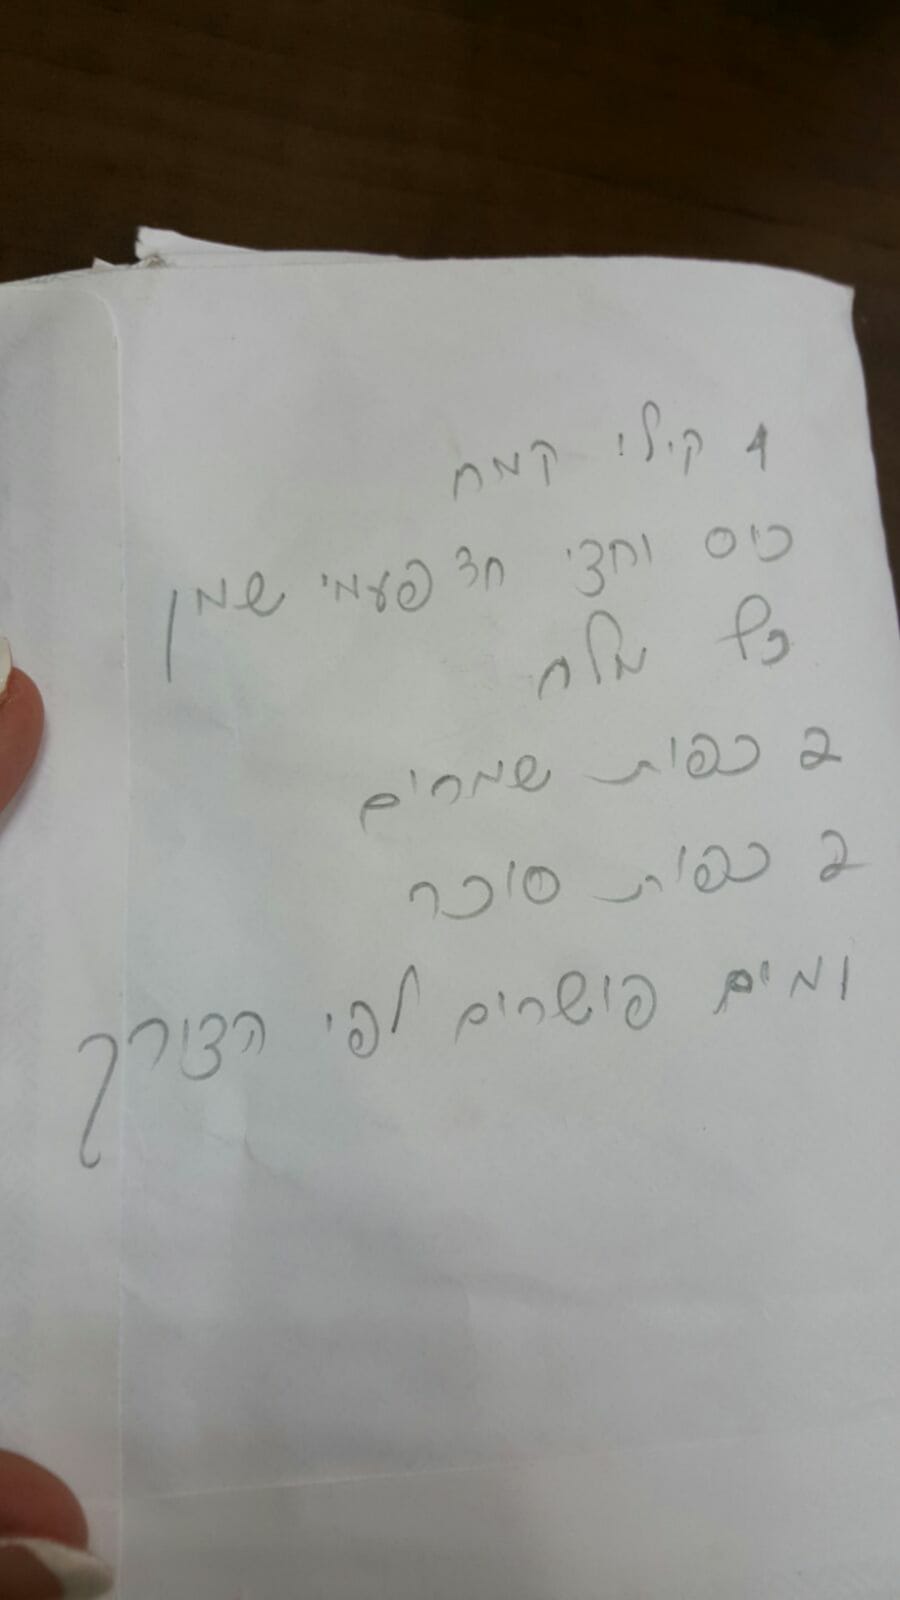 4 קילי קמח
כוס וחצי חד פעמי שמן
כף מלח
2 כפות שמרים
2 כפות סוכר
ומים פושרים לפי הצורך